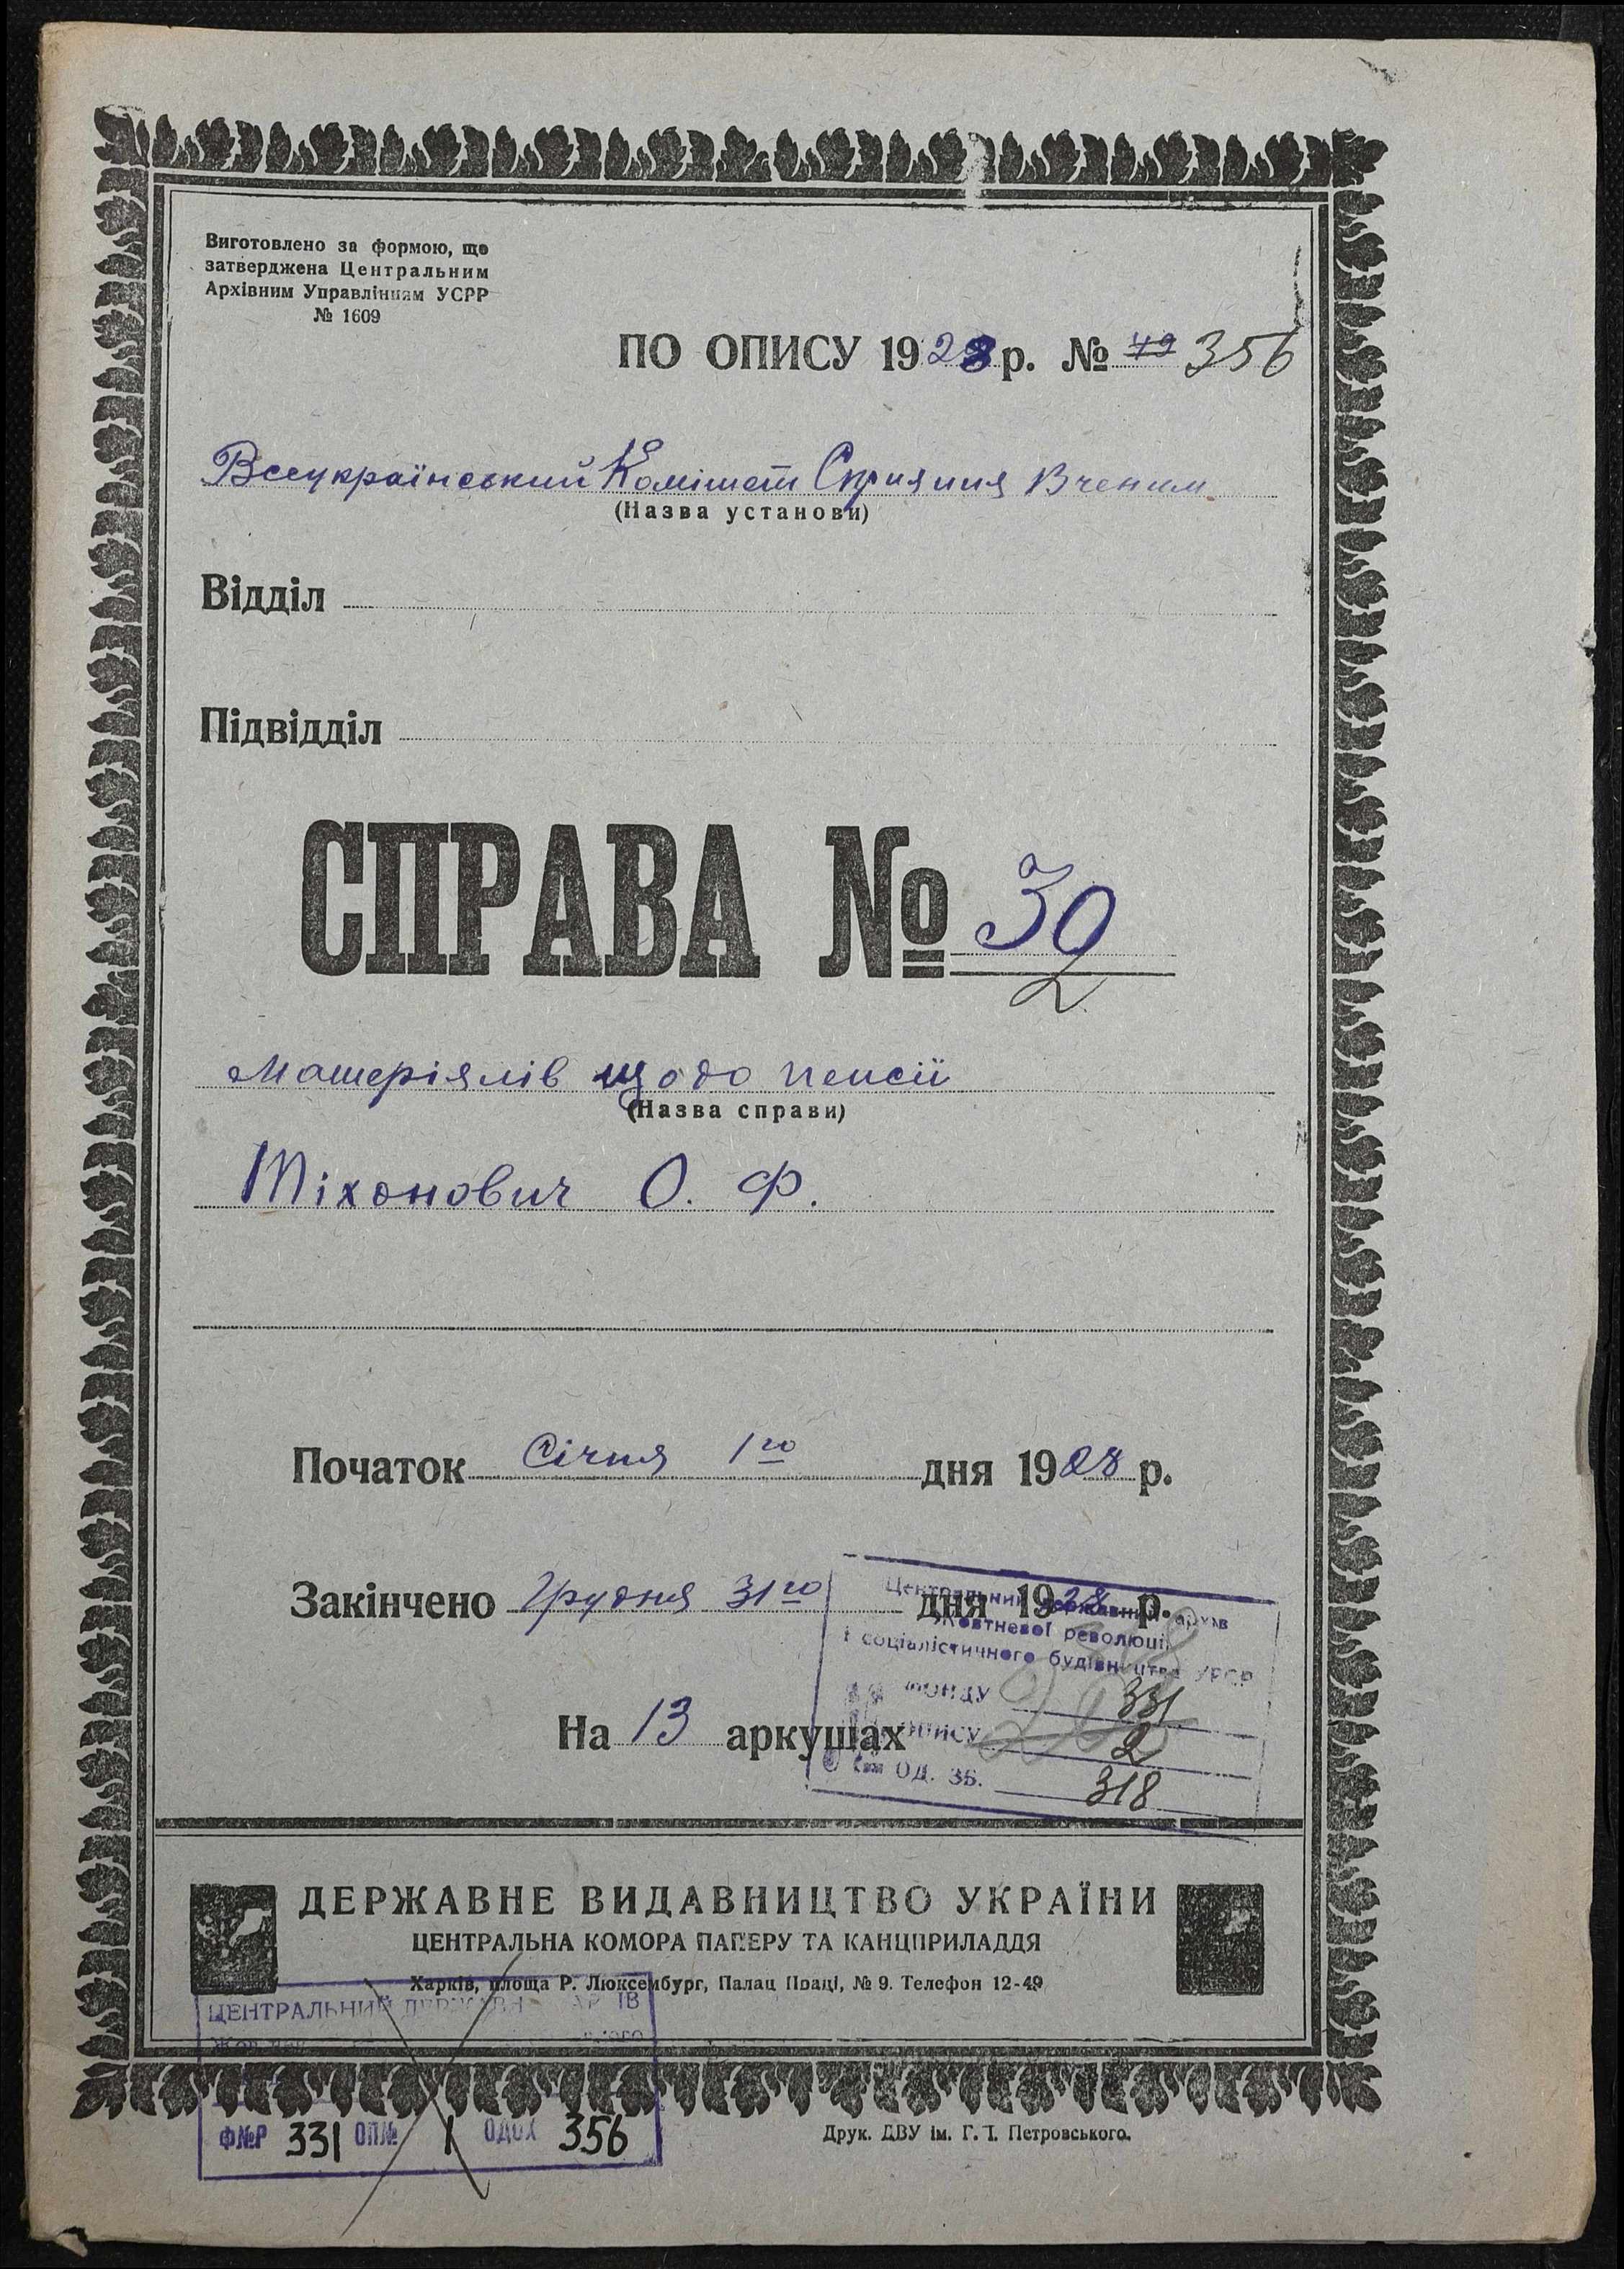 Виготовлено за формою, що
затверджена Центральним
Архівним Управлінням УСРР
№ 1609
ПО ОПИСУ 1928 р. № 49 356
Всеукраїнський Комітет Сприяння Вченим
(Назва установи)
Відділ
Підвідділ
СПРАВА № 30
2
Матеріялів щодо пенсії
(Назва справи)
Тіхонович О. Ф.
Початок Січня 1го дня 1928 р.
Закінчено Грудня 31го дня 1928 р.
Центральний державний архів
Жовтневої революції
і соціалістичного будівництва УРСР
ФОНДУ 331
На 13 аркушах
ОПИСУ 2
ОД. ЗБ. 318
ДЕРЖАВНЕ ВИДАВНИЦТВО УКРАЇНИ
ЦЕНТРАЛЬНА КОМОРА ПАПЕРУ ТА КАНЦПРИЛАДДЯ
Харків, площа Р. Люксембург, Палац Праці, № 9. Телефон 12-49
ЦЕНТРАЛЬНИЙ ДЕРЖАВН АРХІВ
Ф№Р 331 ОП№ 1 ОДОХ 356
Друк. ДВУ ім. Г. І. Петровського.